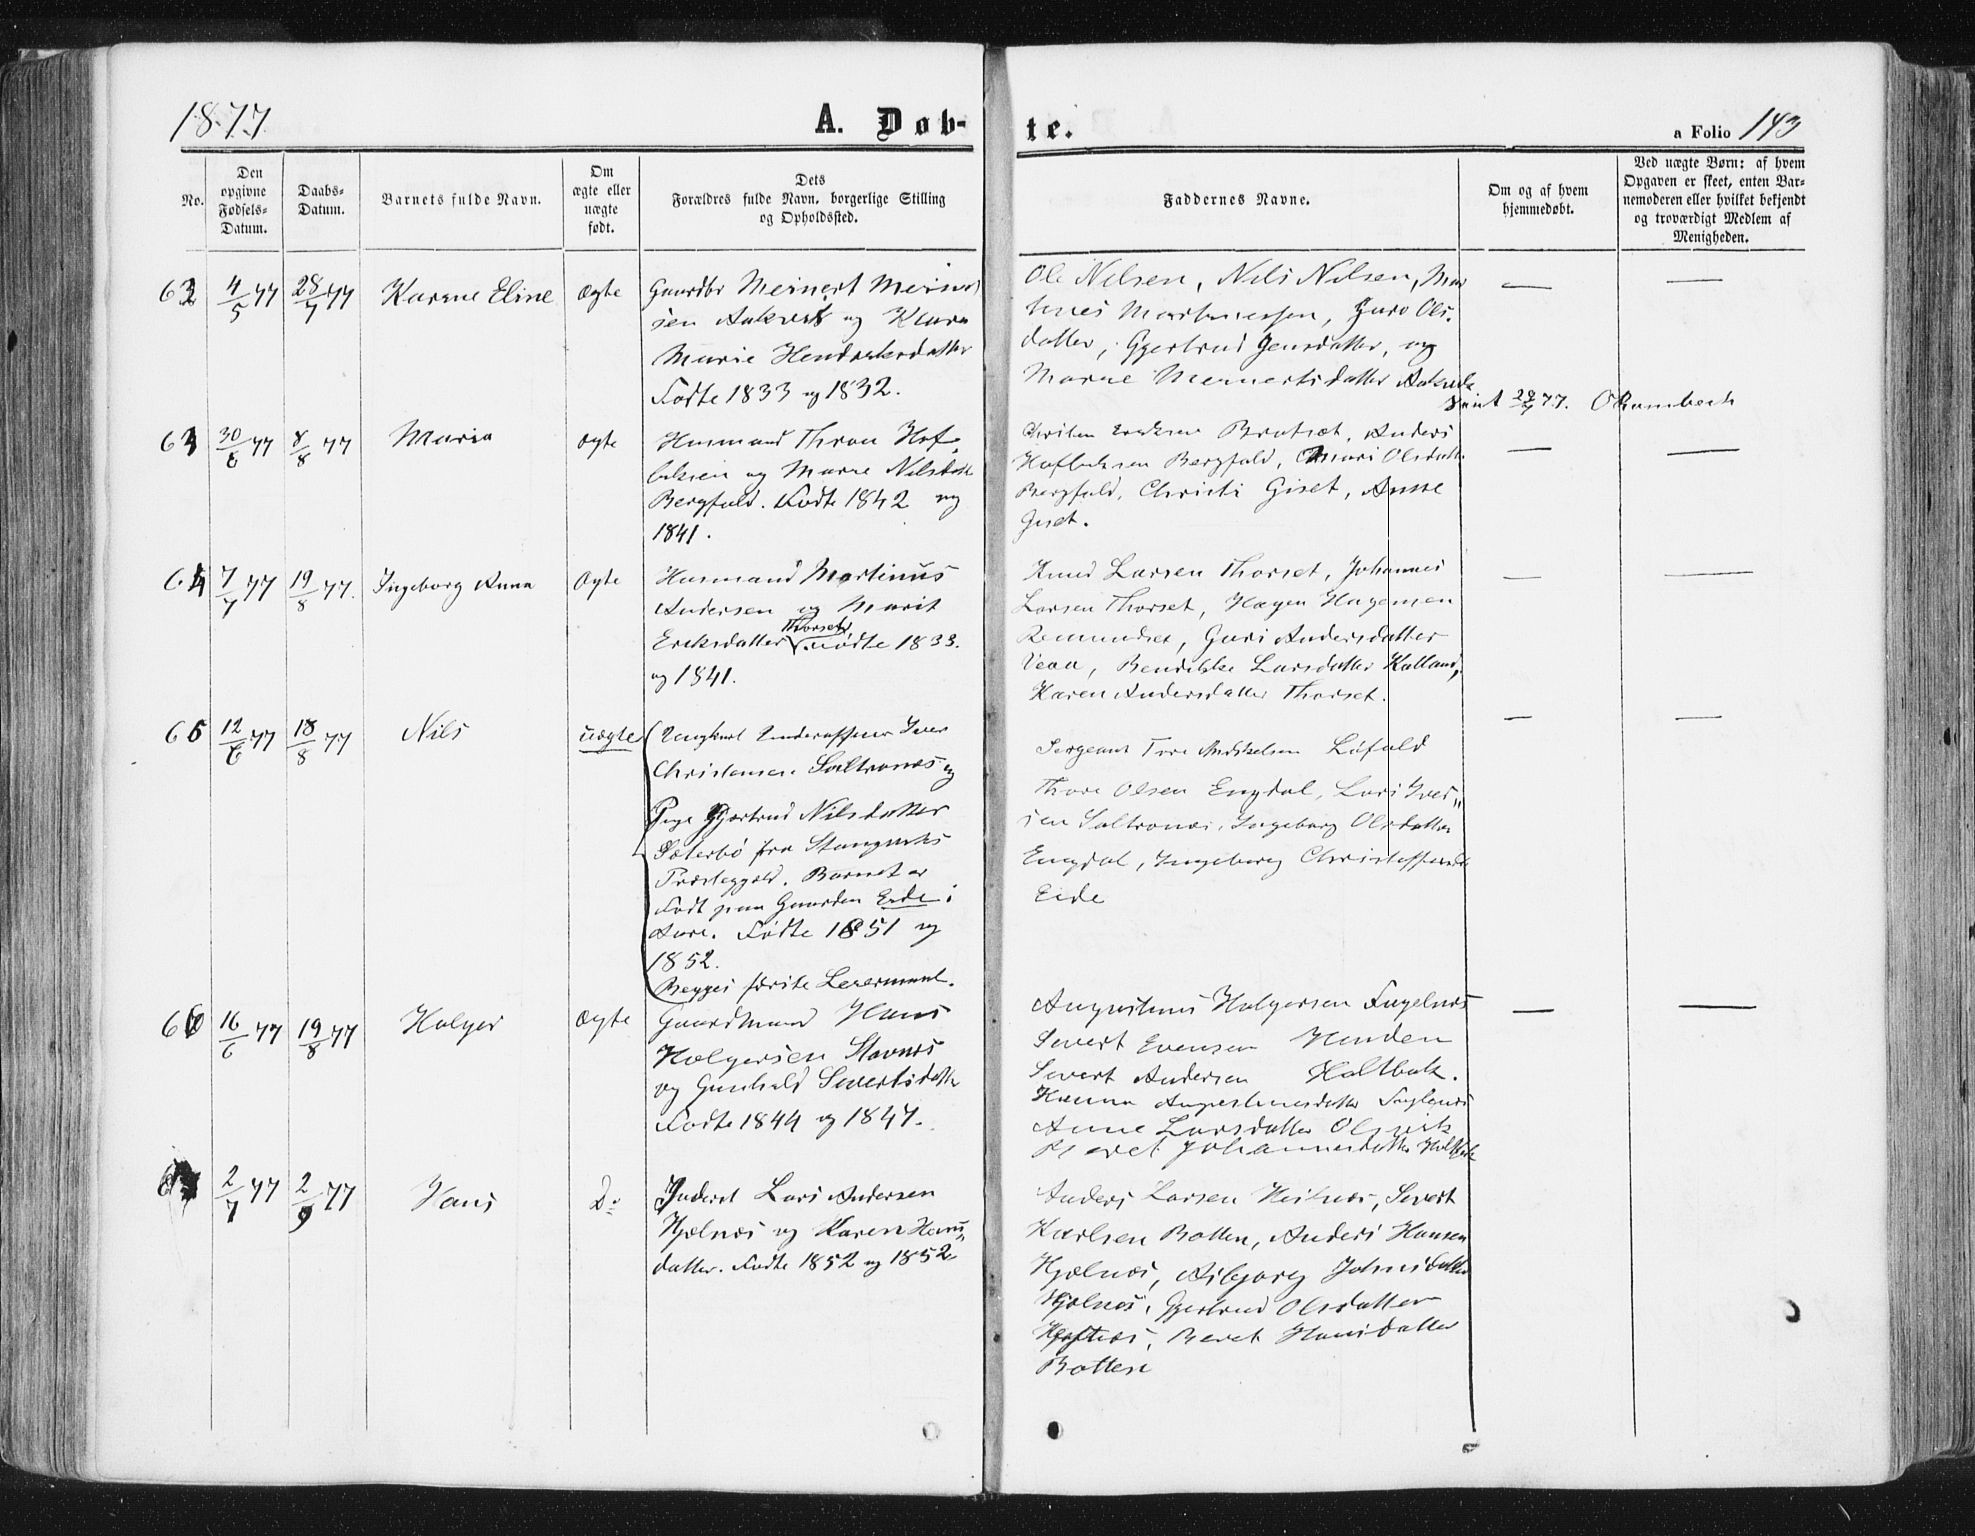 1877.
A. Døb-
te.
a Folio 143
No.
Den
opgivne
Fødsels-
Datum.
Daabs-
Datum.
Barnets fulde Navn.
Om
ægte eller
uægte
født.
Dets
Forældres fulde Navn, borgerlige Stilling
og Opholdssted.
Faddernes Navne.
Om og af hvem
hjemmedøbt.
Ved uægte Børn: af hvem
Opgaven er skeet, enten Bar-
nemoderen eller hvilket bekjendt
og troværdigt Medlem af
Menigheden.
62 4/5 77 28/7 77 Karene Eline ægte
Gaardbr Meinert Meinert
sen Aakvik og Klara
Marie Hendriksdatter
Fødte 1833 og 1832.
Ole Nilsen, Nils Nilsen, Mar
tines Martinessen, Guro Ols.
datter, Gjertrud Jensdatter, og
Marne Meinertsdatter Aakvik
77.
63 30/6 77 8/8 77 Maria ægte
Husmand Thron Hof
og Marie Nilsdatt
Bergfald. Fødte 1842 og
1841.
Bratset, Anders
Bergfald, Mari Olsdatt.
Bergfald, Christi Giset, Anne
Giset.
64 7/7 77 19/8 77. Ingeborg Anna ægte
Husmand Martinus
Andersen og Marit
Eriksdatter Thorset. Fødte 1833.
og 1841.
Knud Larsen Thorset, Johannes
Larsen Thorset, Hagen Hagensen
Remundset, Guri Andersdatter
Larsdatter Kalland,
Karen Andersdatter Thorset.
65 12/6 77 18/8 77 Nils uægte
Ungkarl Underofficer Iver
Christensen Saltrønæs og
Pige Gjertrud Nilsdatter
Sæterbø fra Stangviks
Præstegjæld. Barnet er
Født paa Gaarden Eide i
Aure. Fødte 1851 og
1852.
Begges første Leiermaal.
Sergeant Tore Løfald
Thore Olsen Engdal, Lars Iver„
sen Saltrønæs, Ingeborg Olsdatter
Engdal, Ingeborg
Eide
66 16/6 77 19/8 77 Holger ægte
Gaardmand Hans
Holgersen Stavnes
og Gunhild Sivertsdatte
Fødte 1844 og 1847.
Augustinus Holgersen Fuglnæs
Sivert Evensen Henden
Sivert Andersen Holtbak.
Hanna Augustinusdatter Fuglenæs
Anne Larsdatter Olsvik
Beret Johannesdatter Holtbak
2/7 77 2/9 77 Hans Do
Inderst Lars Andersen
Hjelnæs og Karen Hans„
datter. Fødte 1852 og 1852
Anders Larsen Heitnæs, Sivert
Karlsen Botten, Anders Hansen
Hjelnæs, Asbjørg Johnsdatter
Hjelnæs, Gjertrud Olsdatter
Beret Hansdatter
Botten